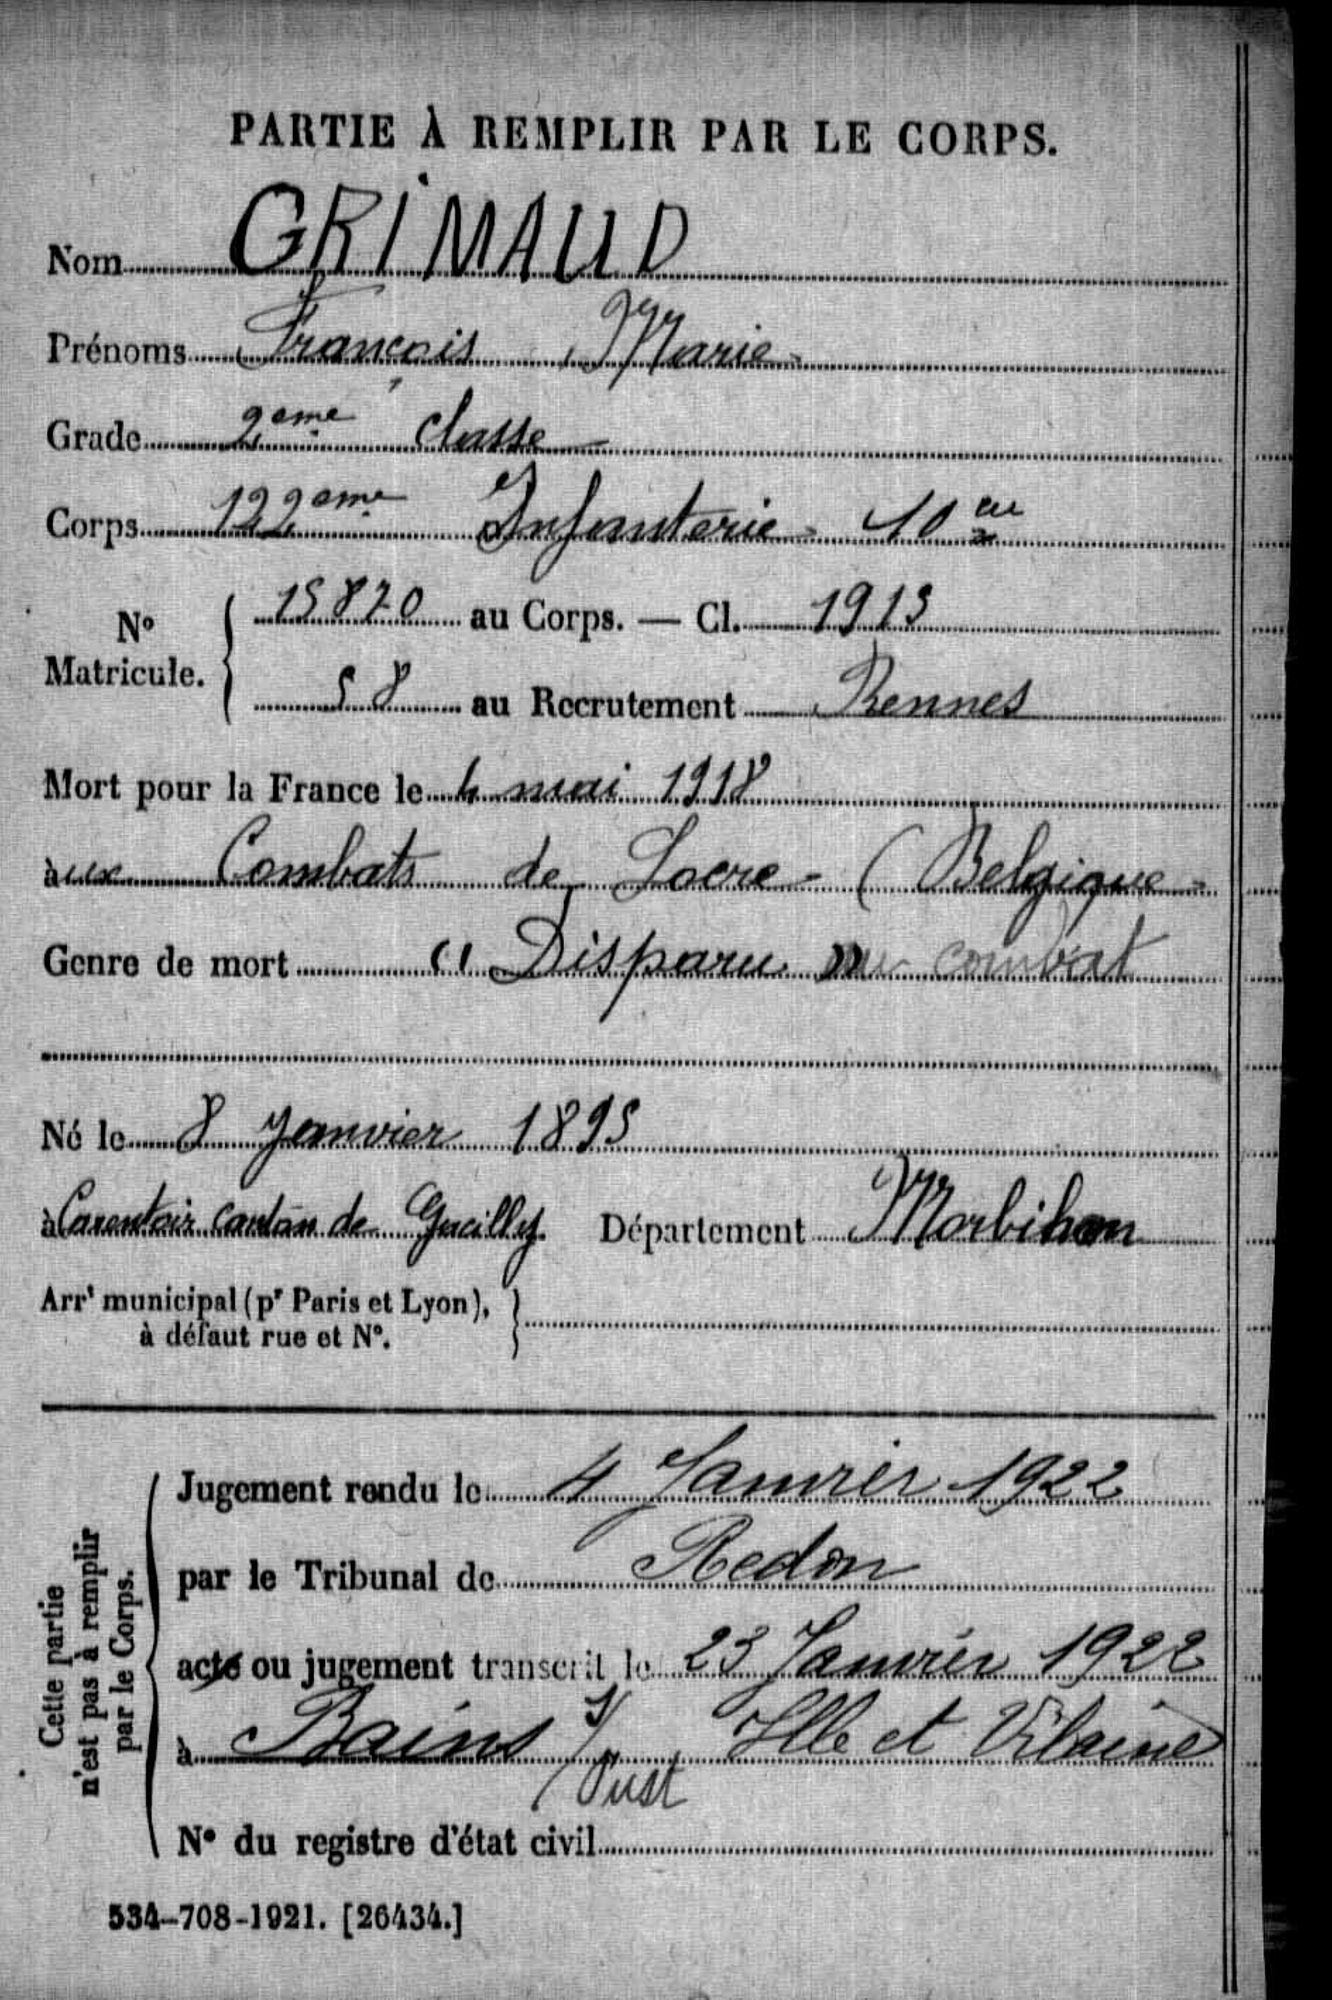 PARTIE À REMPLIR PAR LE CORPS.
Nom GRIMAUD
Prénoms François Marie
Grade 2ème classe
Corps 122ème Infanterie 10 cie
No Matricule. { 15870 au Corps. — Cl. 1915
58 au Recrutement Rennes
Mort pour la France le 4 mai 1918
aux Combats de Locre (Belgique
Genre de mort " Disparu au combat
Né le 8 Janvier 1895
à Carentoir canton de Gacilly Département Morbihan
Arrt municipal (pr Paris et Lyon), }
à défaut rue et No.
Cette partie
n'est pas à remplir
par le Corps.
Jugement rendu le 4 Janvier 1922
par le Tribunal de Redon
acte ou jugement transcrit le 23 Janvier 1922
à Bains s/ Ille et Vilaine
Oust
No du registre d'état civil
534-708-1921. [26434.]